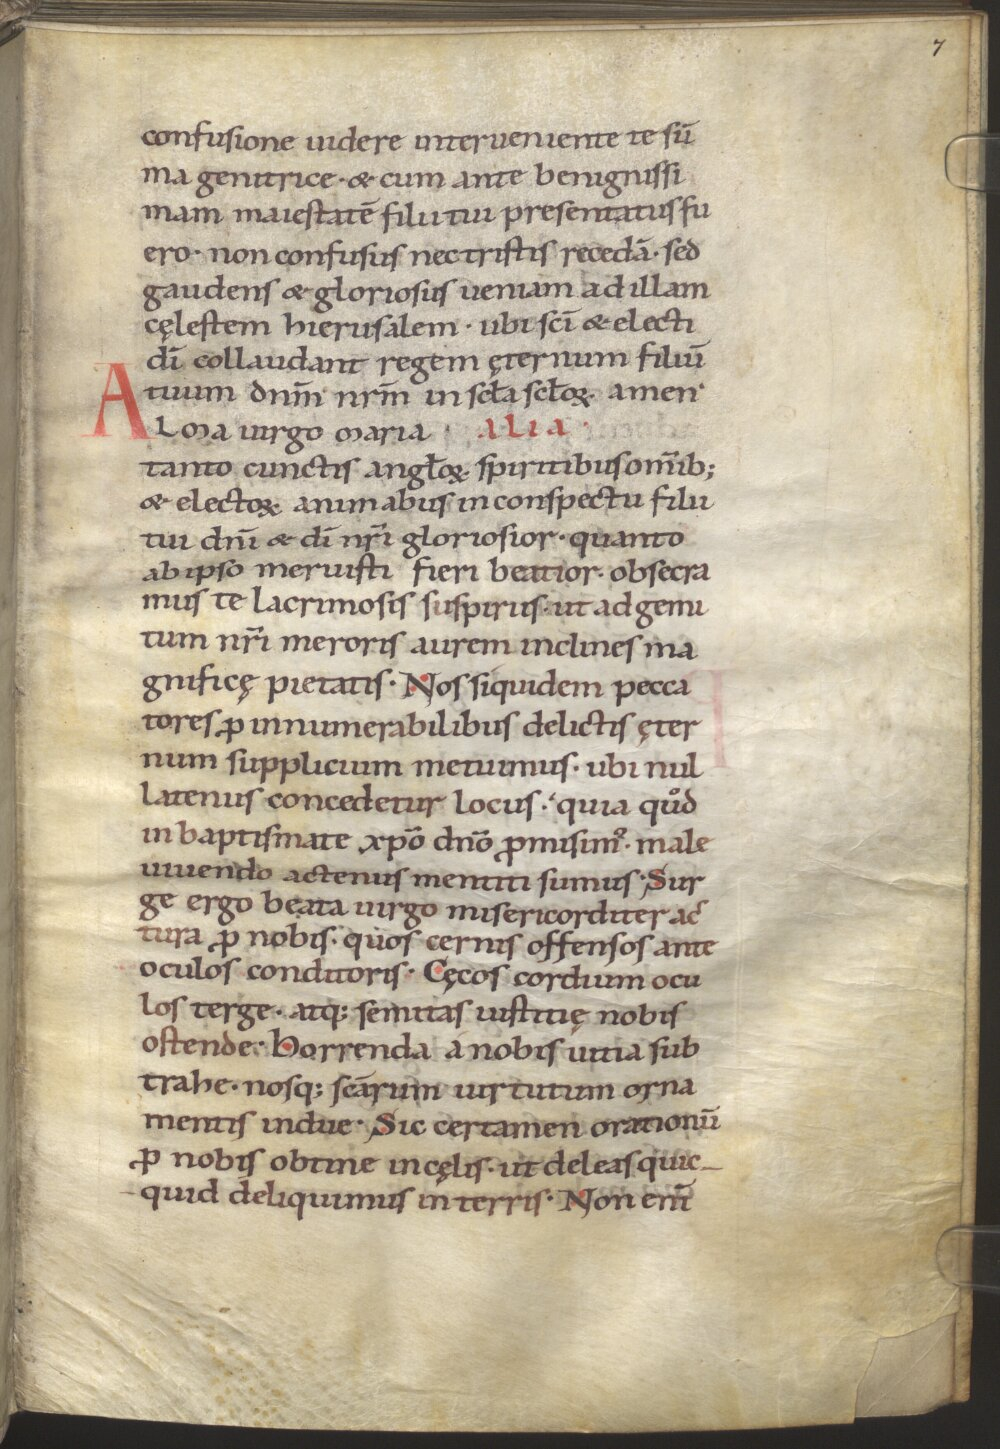 7
confusione uidere interueniente te sū
ma genitrice · & cum ante benignissi
mam maiestatē filii tui presentatus fu
ero · non confusus nec tristis recedā · sed
gaudens & gloriosus ueniam ad illam
cęlestem hierusalem · ubi sc̄i & electi
dī collaudant regem ęternum filiū
tuum dnm̄ nrm̄ in scła scłoꝝ · amen ·
ALma uirgo maria · ALIA ·
tanto cunctis angłoꝝ spiritibus om̄ib;
& electoꝝ animabus in conspectu filii
tui dnī & dī nr̄i gloriosior · quanto
ab ipso meruisti fieri beatior · obsecra
mus te lacrimosis suspiriis · ut ad gemi
tum nr̄i meroris aurem inclines ma
gnificę pietatis · Nos siquidem pecca
tores ꝓ innumerabilibus delictis ęter
num supplicium metuimus · ubi nul
latenus concedetur locus · quia quod
in baptismate xpō dnō ꝓmisimꝰ · male
uiuendo actenus mentiti sumus · Sur
ge ergo beata uirgo misericorditer ac
tura ꝓ nobis · quos cernis offensos ante
oculos conditoris · Cęcos cordium ocu
los terge · atq; semitas iustitię nobis
ostende · Horrenda a nobis uitia sub
trahe · nosq; scārum uirtutum orna
mentis indue · Sic certamen orationū
ꝓ nobis obtine in cęlis · ut deleas quic-
-quid deliquimus in terris · Non enī